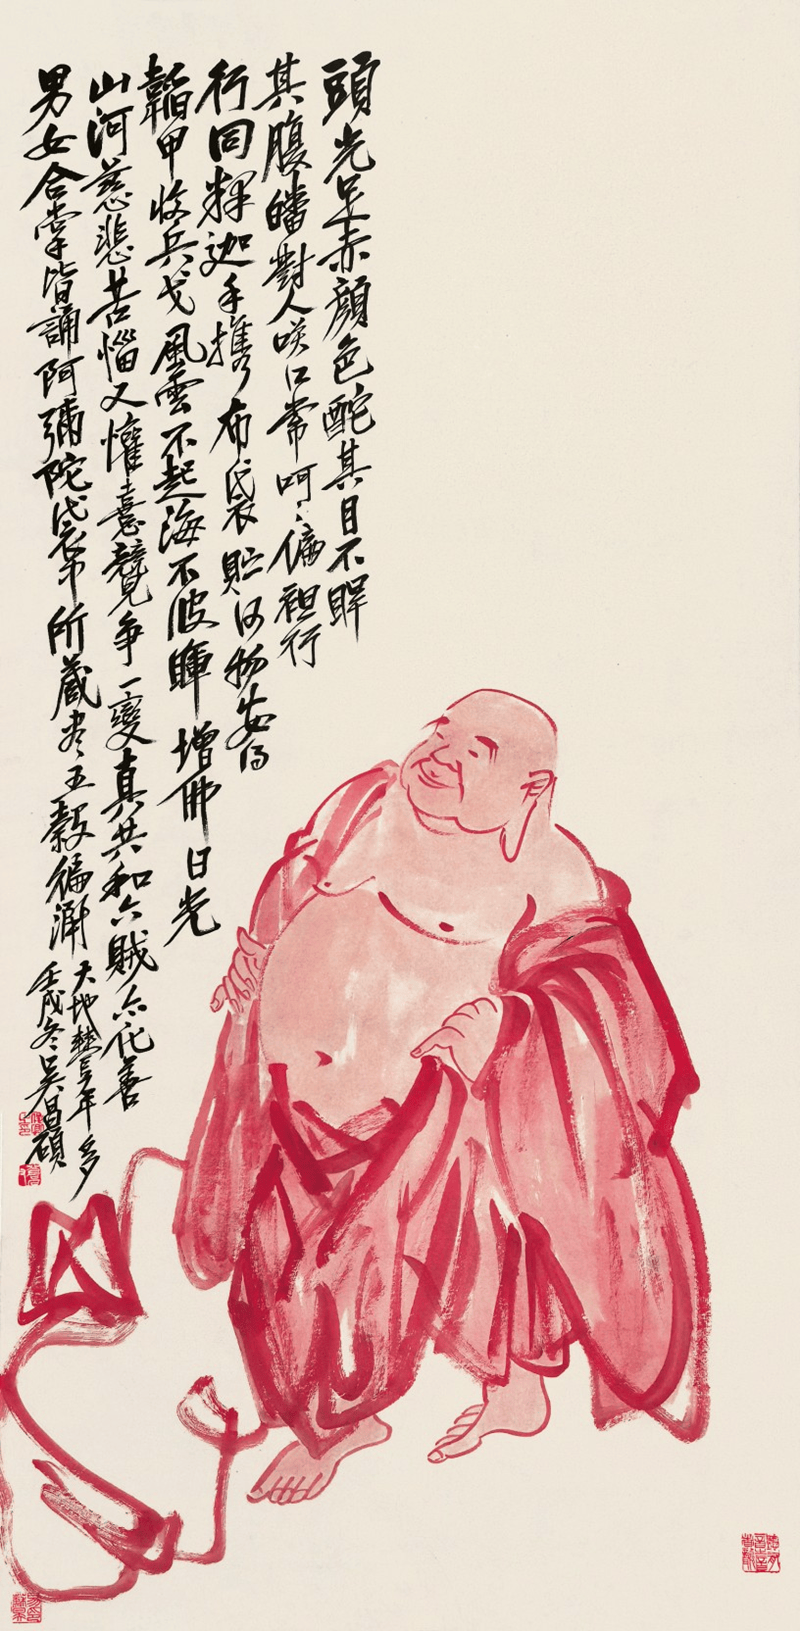 頭光足赤顏色酡其目不睅
其腹皤對人咲口常呵〻偏袒行
行同釋迦手攜布袋貯何物安得
韜甲收兵戈風雲不起海不波暉增佛日光
山河慈悲苦惱又懽喜競爭一變真共和六賊亦化善
男女合掌皆誦阿彌陀袋中所藏者五穀徧濟
天地樊亨年多
壬戌冬吳昌碩